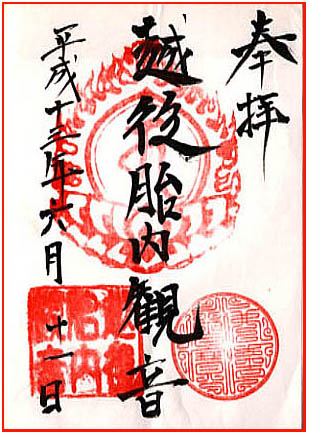 奉拝
越後胎内観音
平成十三年六月十一日